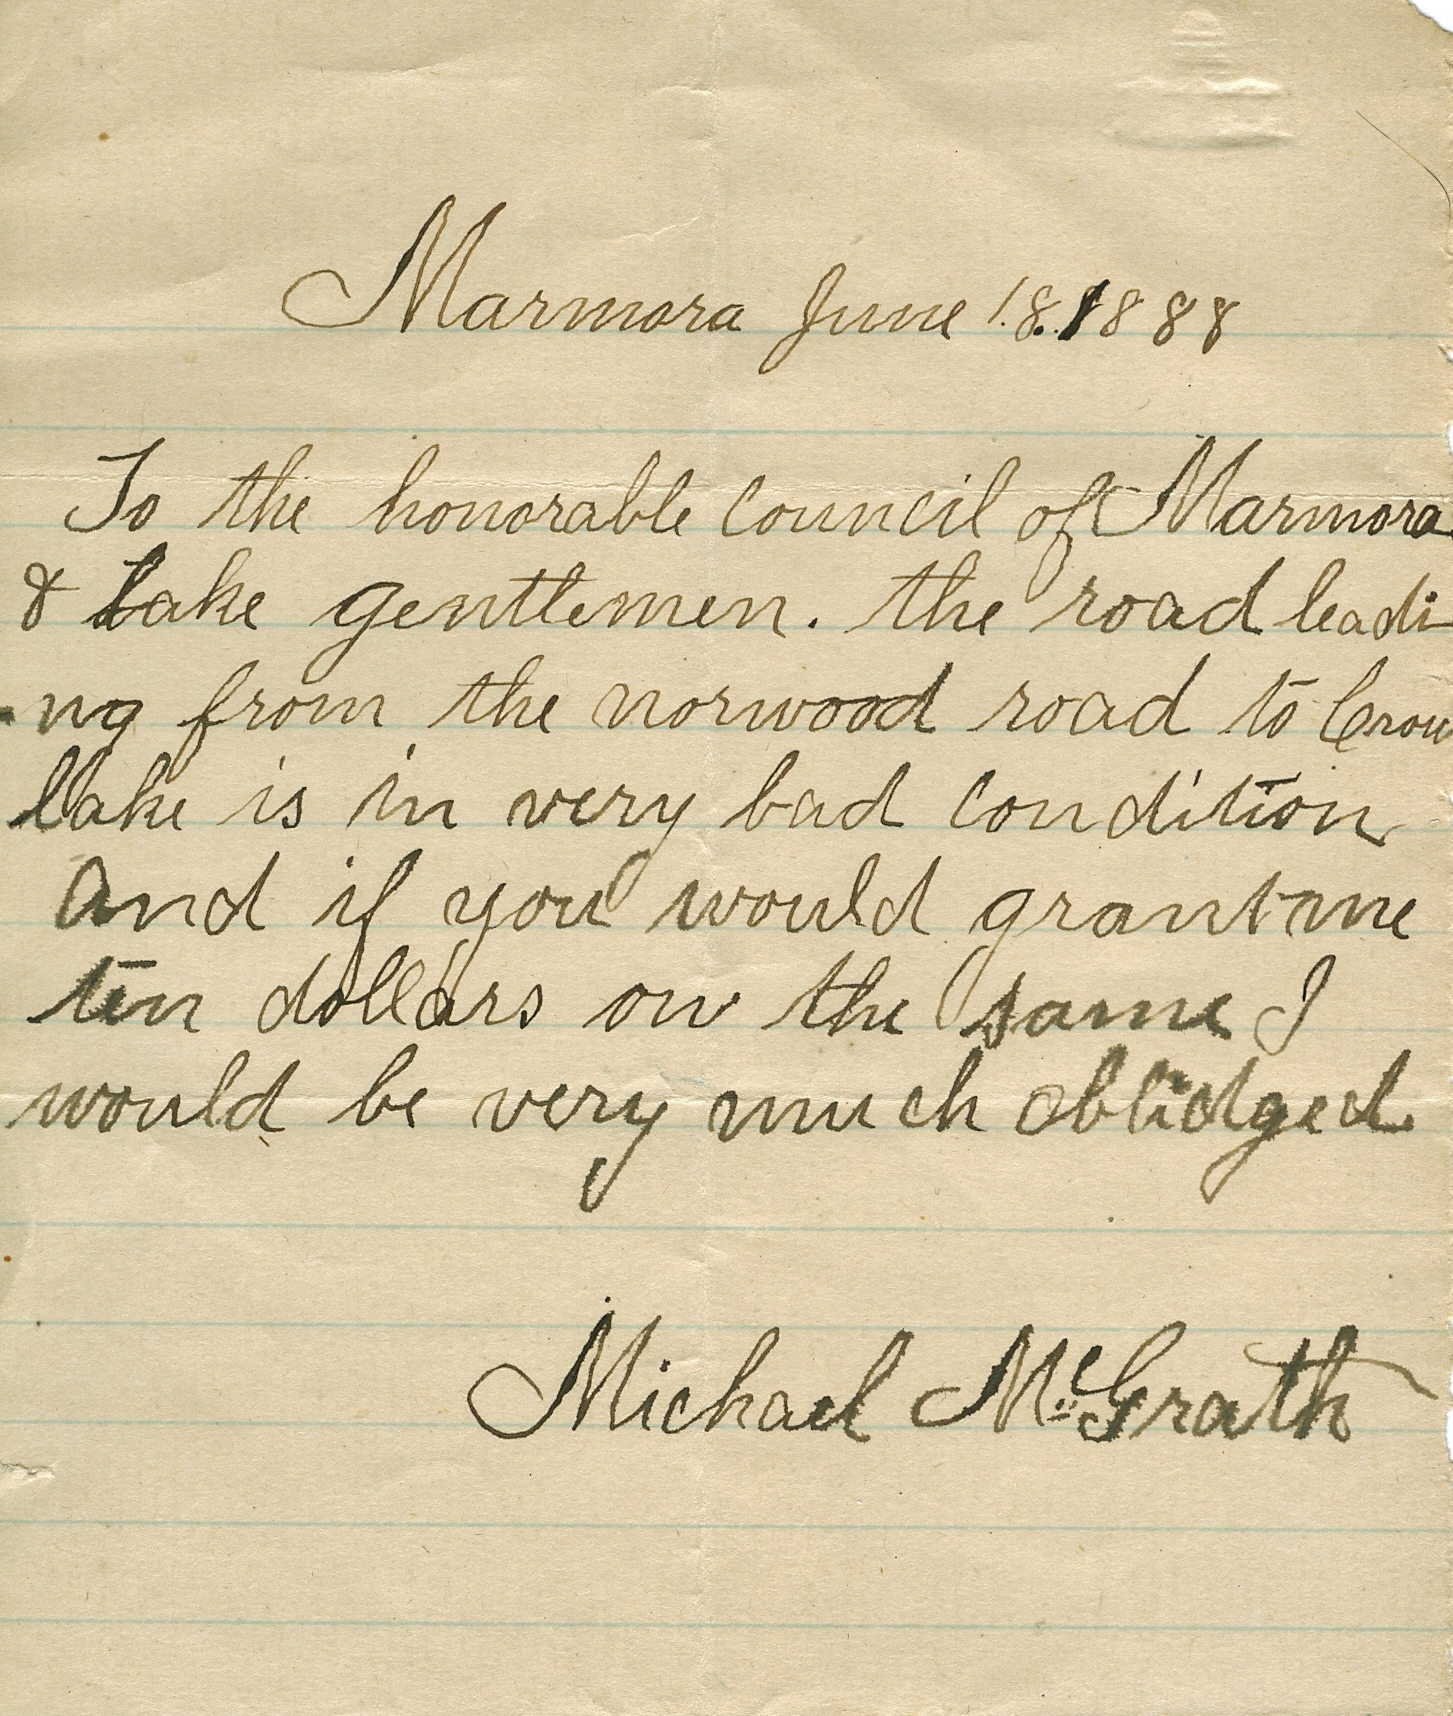 Marmora June 18. 1888
To the honorable Council of Marmora
& Lake gentlemen. the road leadi
-ng from the norwood road to Crow
lake is in very bad condition
and if you would grant me
ten dollars on the same I
would be very much oblidged.
Michael McGrath